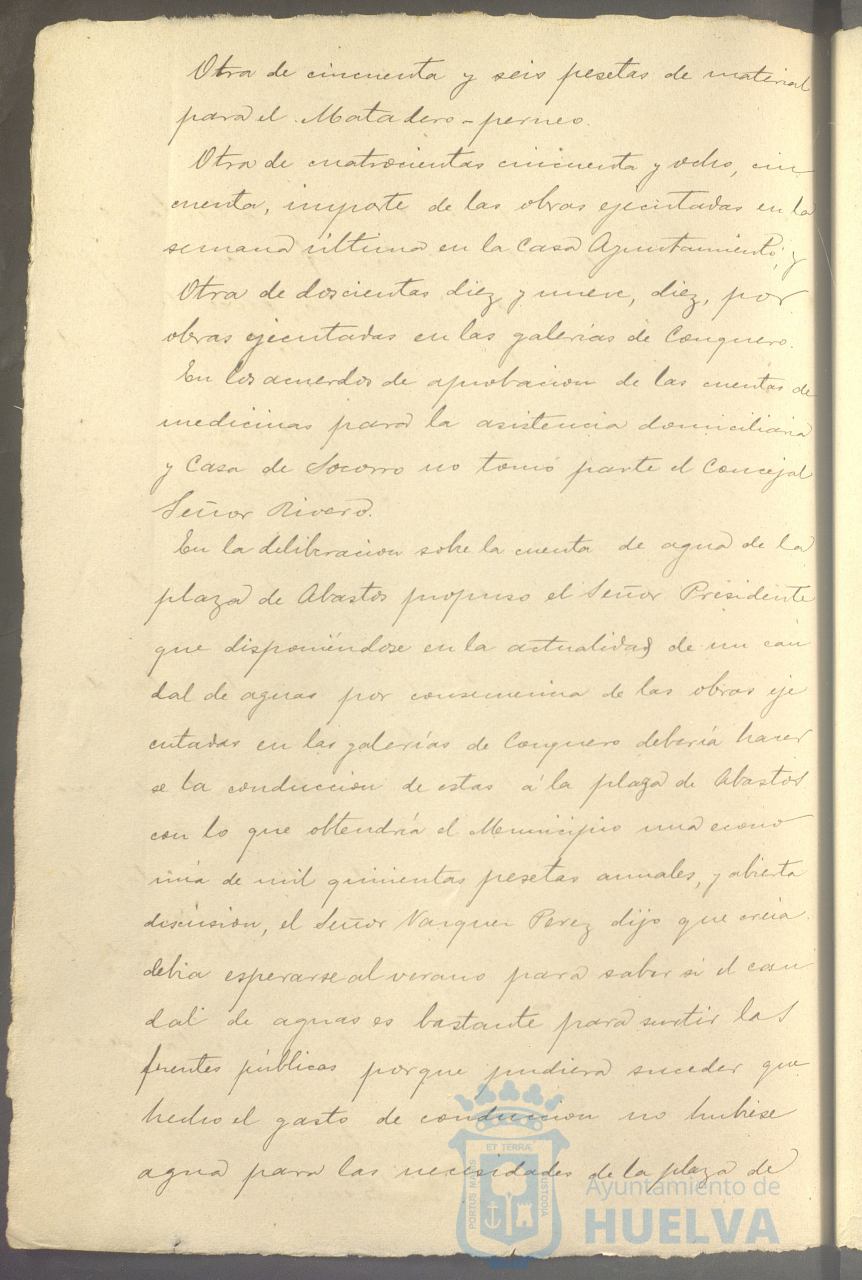 Otra de cincuenta y seis pesetas de material
para el Matadero-perneo.
Otra de cuatrocientas cincuenta y ocho, cin
cuenta, importe de las obras ejecutadas en la
semana última en la Casa Ayuntamiento; y
Otra de doscientas diez y nueve, diez, por
obras ejecutadas en las galerías de Conquero.
En los acuerdos de aprobacion de las cuentas de
medicinas para la asistencia domiciliaria
y Casa de Socorro no tomó parte el Concejal
Señor Rivero.
En la deliberacion sobre la cuenta de agua de la
plaza de Abastos propuso el Señor Presidente
que disponiéndose en la actualidad de un cau
dal de aguas por consecuencia de las obras eje
cutadas en las galerías de Conquero debería hacer
se la conduccion de estas á la plaza de Abastos
con lo que obtendría el Municipio una econo
mía de mil quinientas pesetas anuales, y abierta
discusion, el Señor Vazquez Perez dijo que creia
debia esperarse al verano para saber si el cau
dal de aguas es bastante para surtir las
fuentes públicas porque pudiera suceder que
hecho el gasto de conduccion no hubiese
agua para las necesidades de la plaza de
ET TERRÆ
PORTUS MARIS
CUSTODIA
Ayuntamiento de
HUELVA